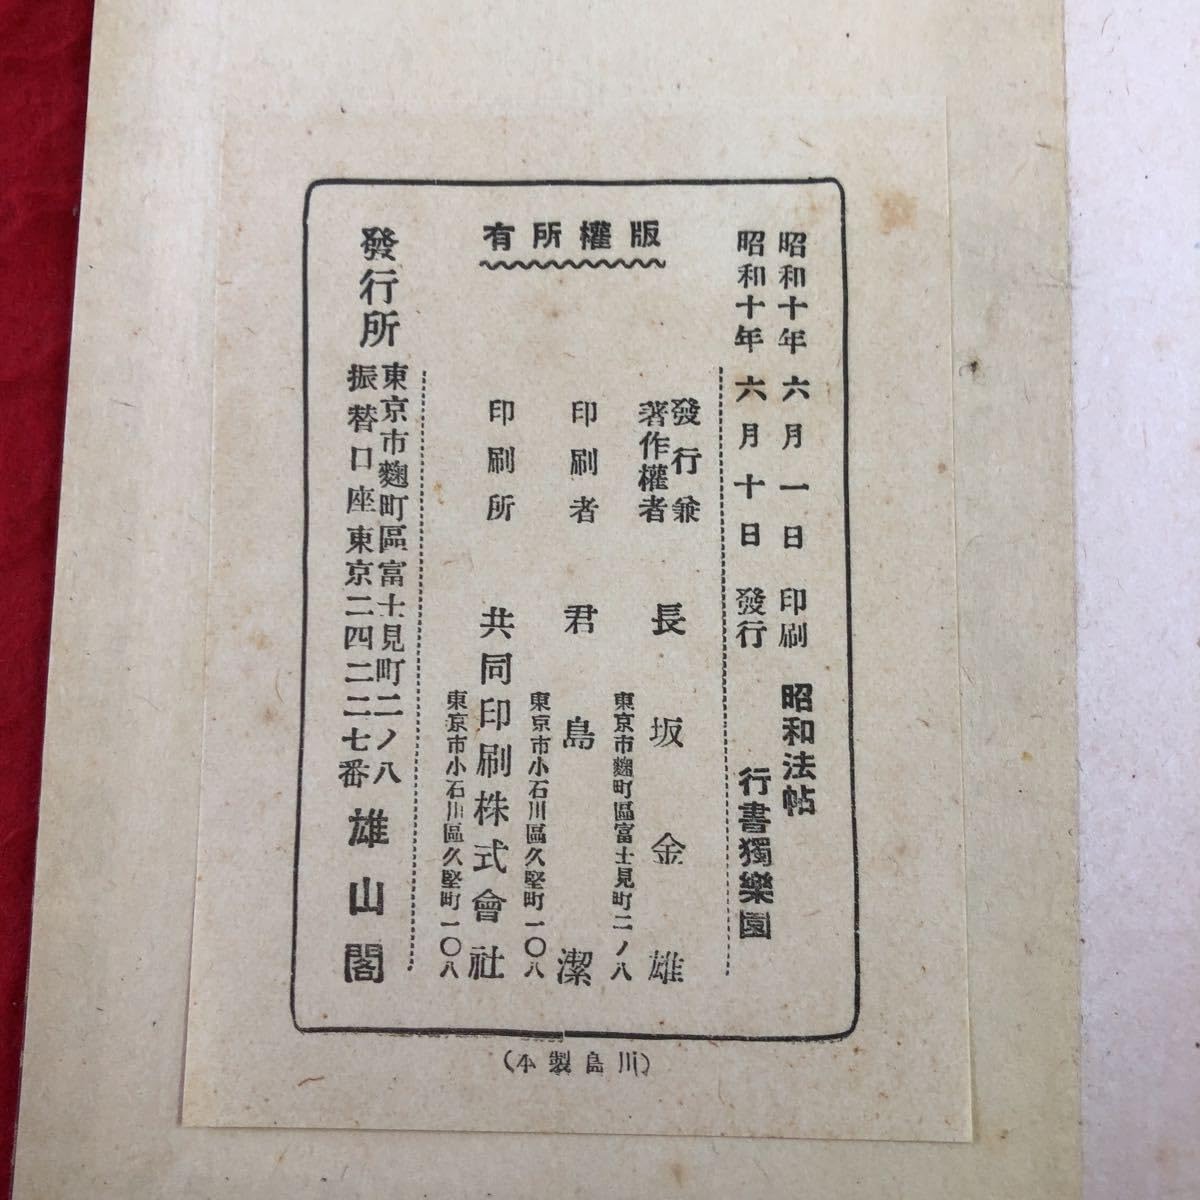 昭和十年六月一日印刷
昭和十年六月十日發行
昭和法帖
行書獨樂園
版權所有
發行兼
著作權者
長坂金雄
東京市麴町區富士見町二ノ八
印刷者
君島潔
東京市小石川區久堅町一〇八
印刷所
共同印刷株式會社
東京市小石川區久堅町一〇八
發行所
東京市麴町區富士見町二ノ八
振替口座東京二四二二七番
雄山閣
(川島製本)